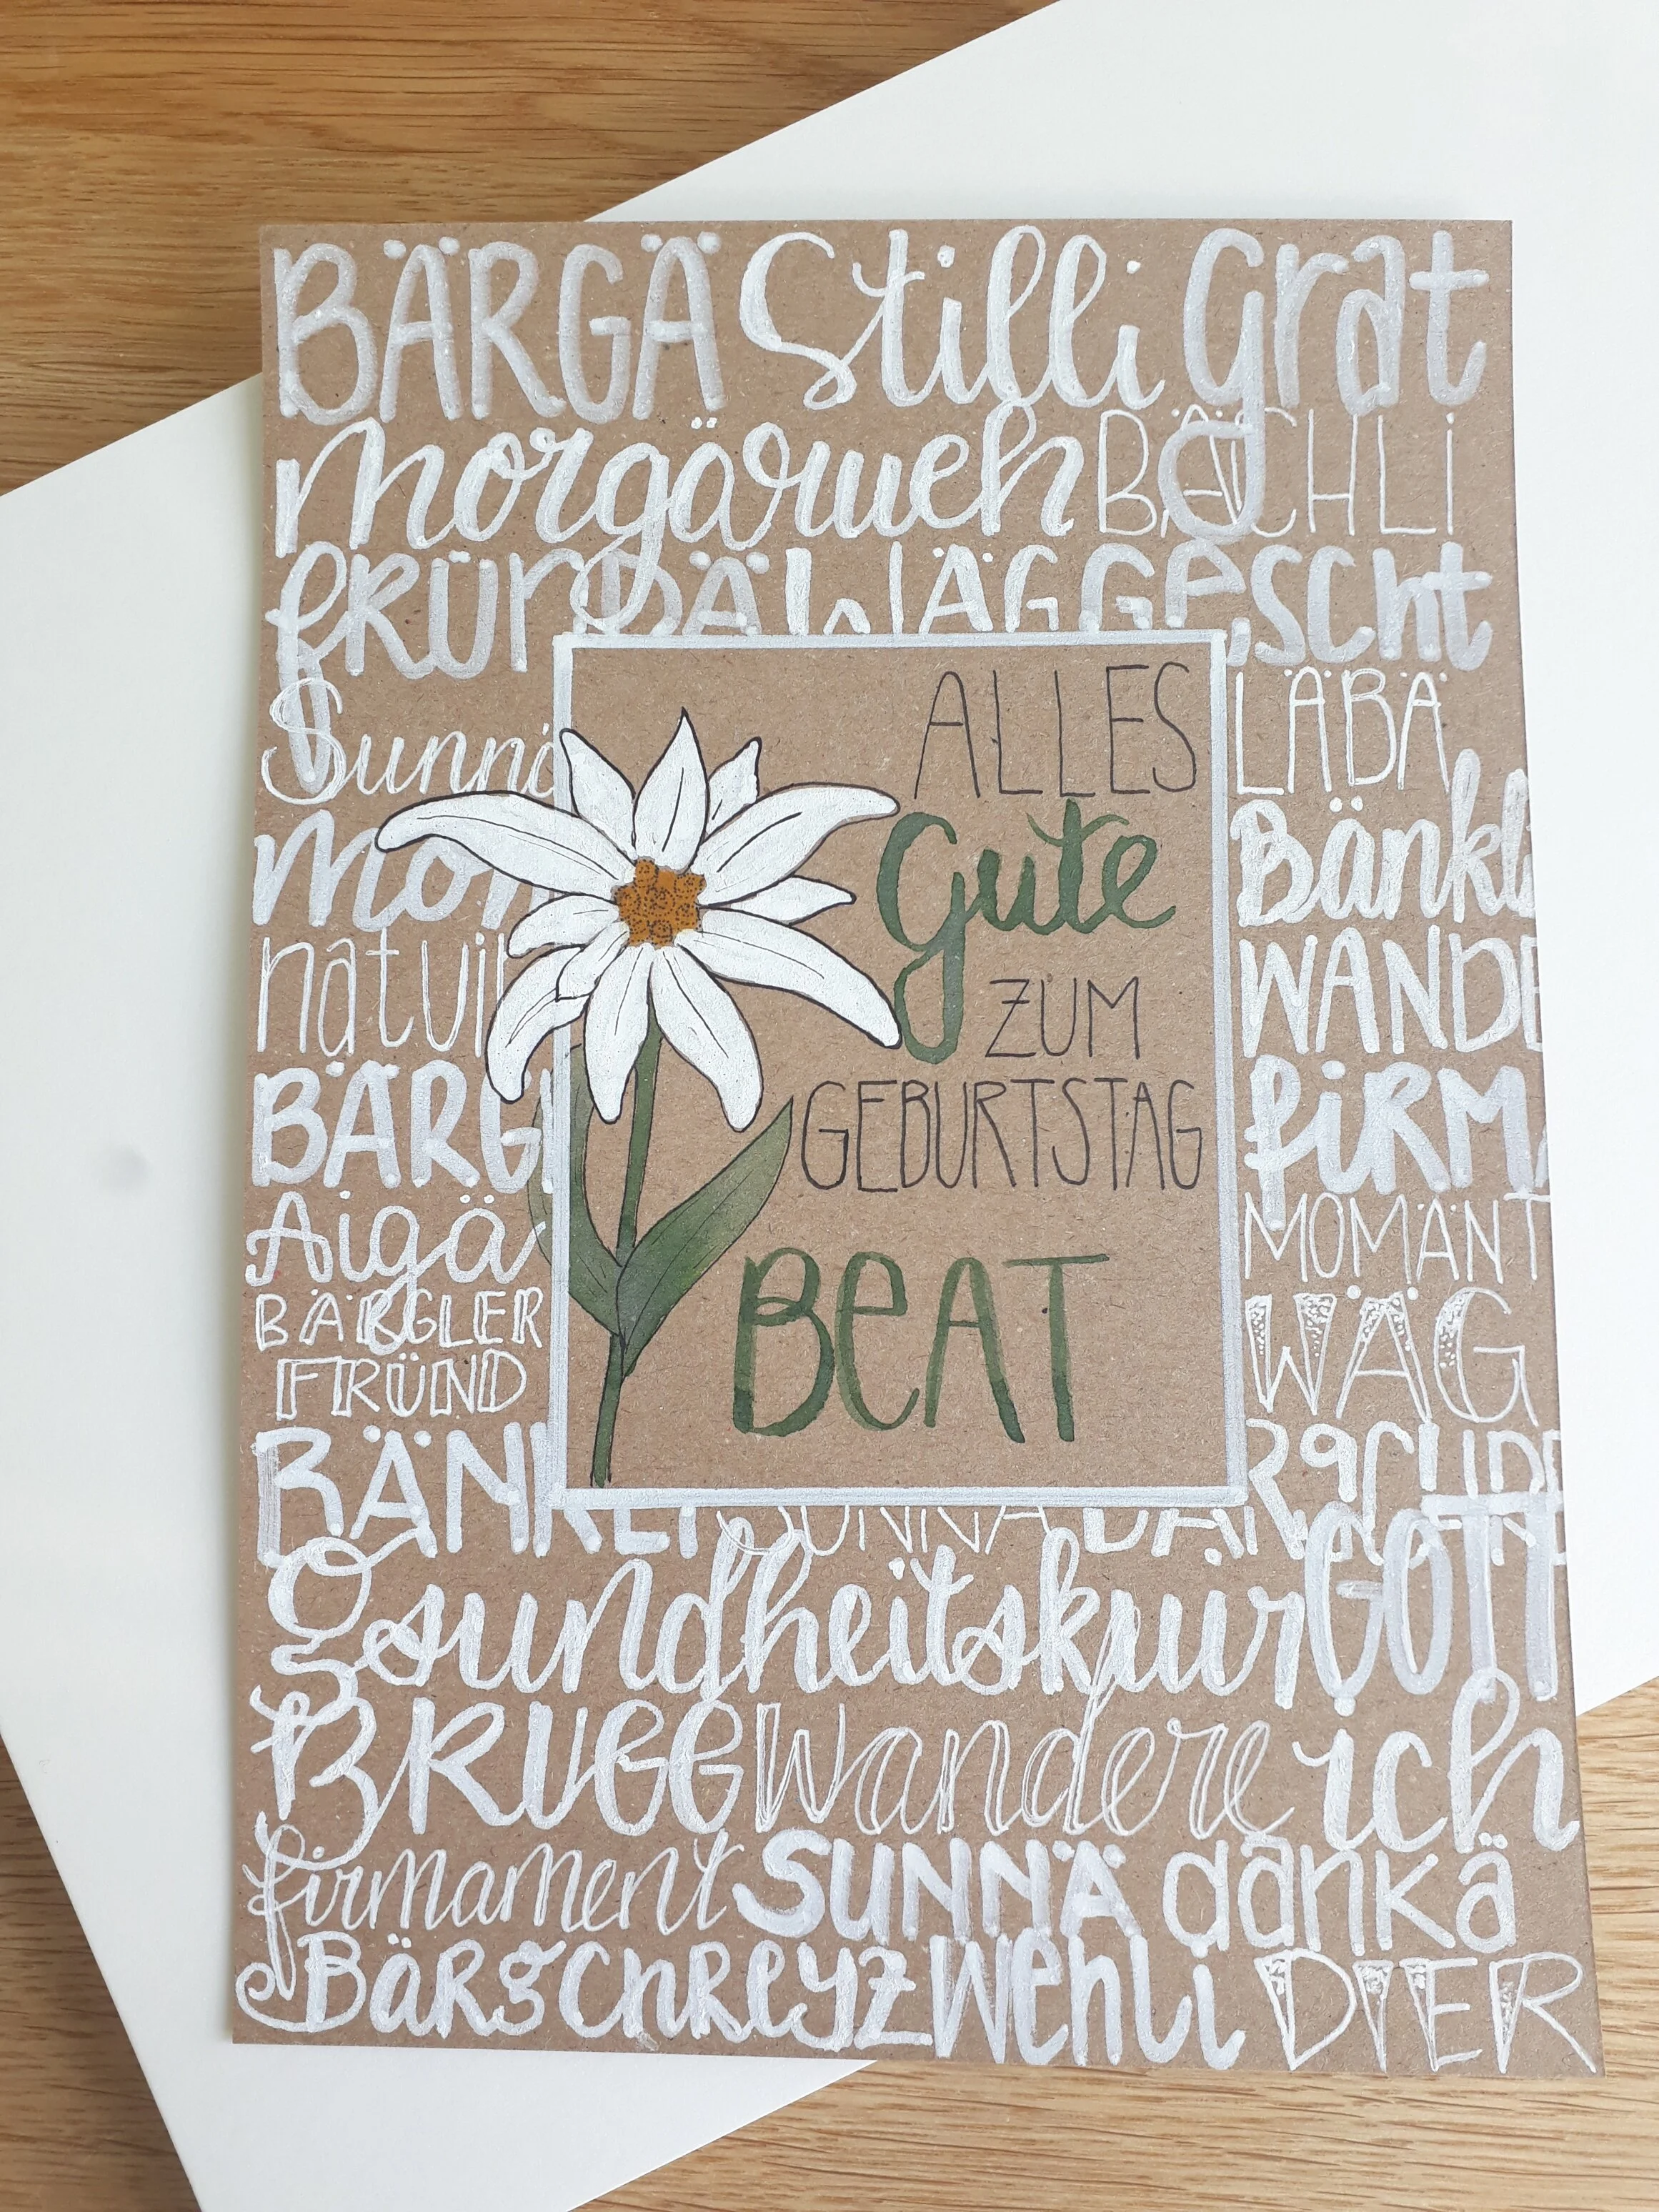 BÄRGÄ Stilli Grat
Morgärueh BÄCHLI
FRÜNDÄ WÄG Gescht
Sunnä
LÄBÄ
ALLES
Gute
ZUM
GEBURTSTAG
BEAT
Mon
Bänkli
natuir
WANDE
BÄRG
FIRMA
Aigä
MOMÄNT
BÄRGLER
FRÜND
WÄG
BÄNKLI SUNNÄ
gsundheitskuir GOTT
BRUGG Wandere ich
firmament SUNNÄ dankä
BÄRGCHREYZ Wehli DIER